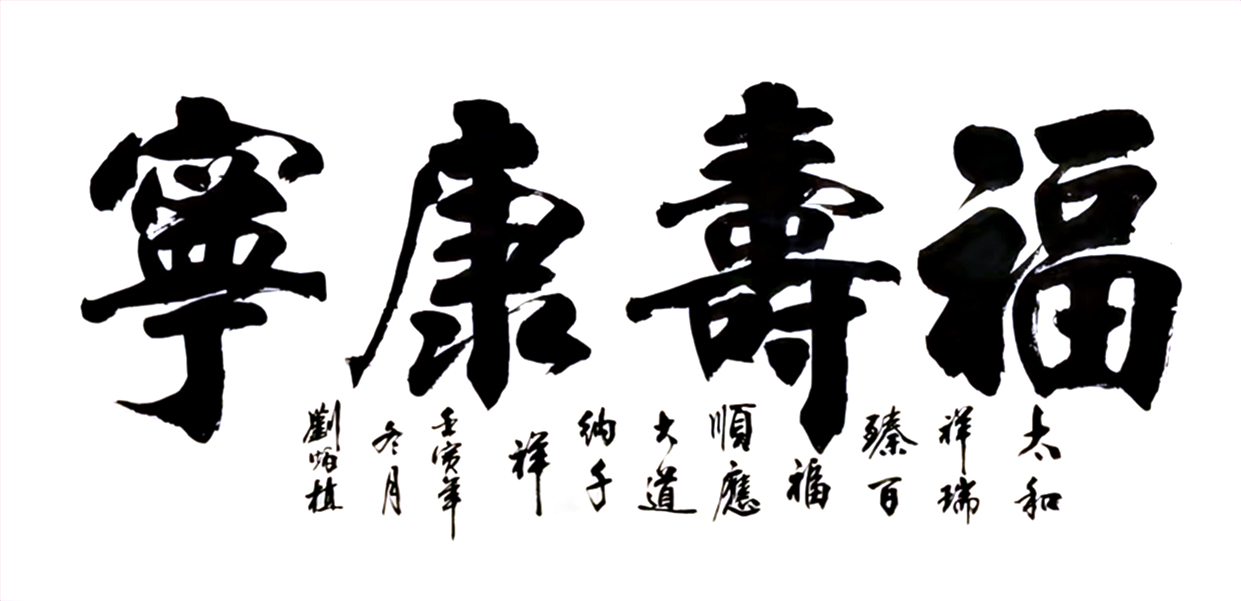 福壽康寧
太和
祥瑞
臻百
福
順應
大道
納千
祥
壬寅年
冬月
劉炳植